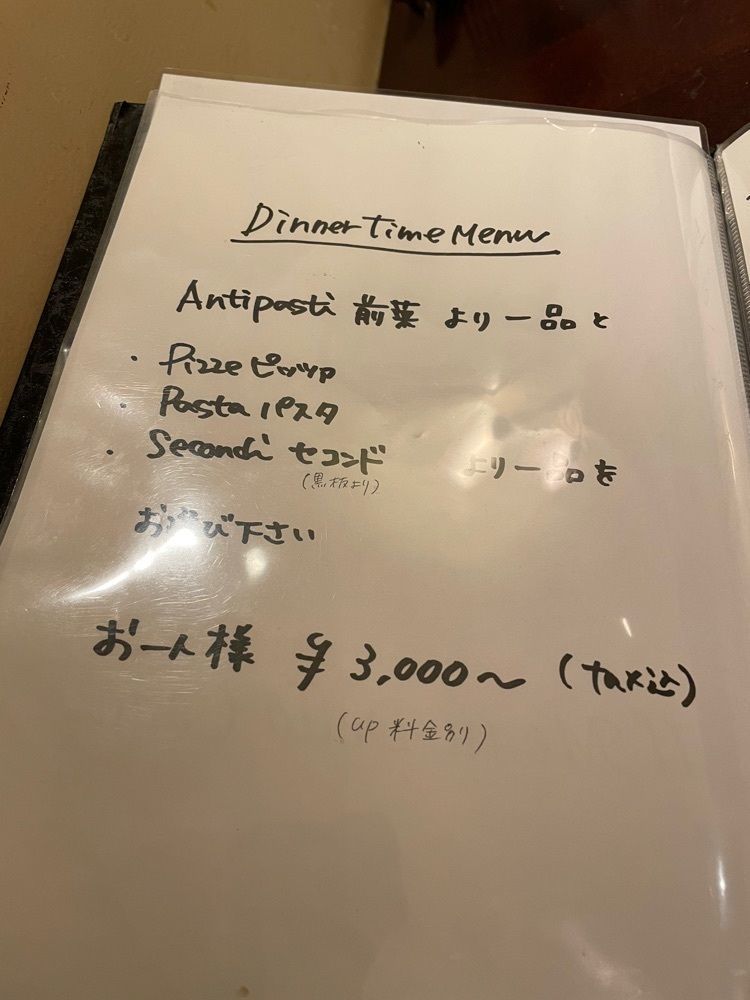 Dinner Time Menu
Antipasti 前菜 より一品と
・ Pizze ピッツァ
・ Pasta パスタ
・ Secondi セコンド より一品を
(黒板より)
お選び下さい
お一人様 ¥3,000〜 (tax込)
(up 料金別り)